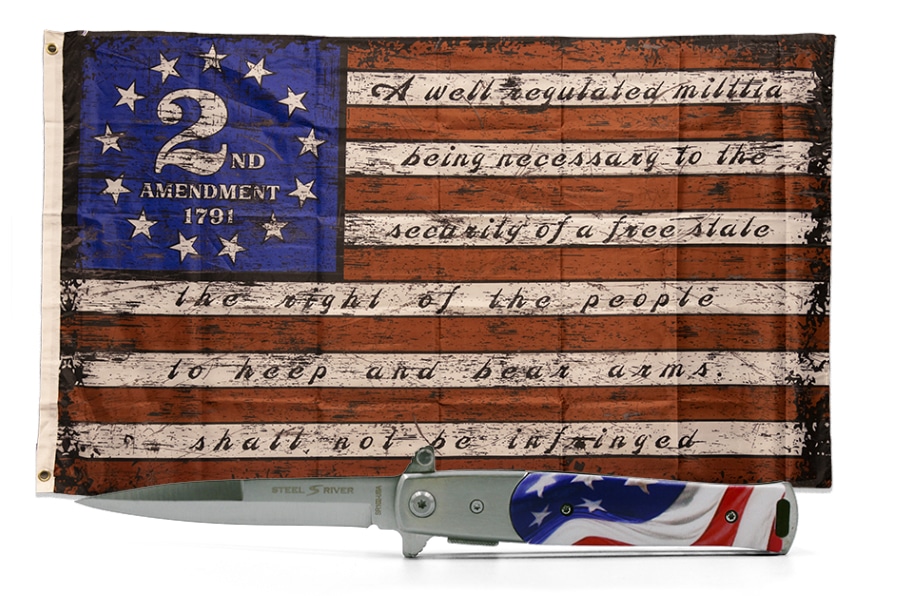 2ND
AMENDMENT
1791
A well regulated militia
being necessary to the
security of a free state
the right of the people
to keep and bear arms.
shall not be infringed
STEEL S RIVER